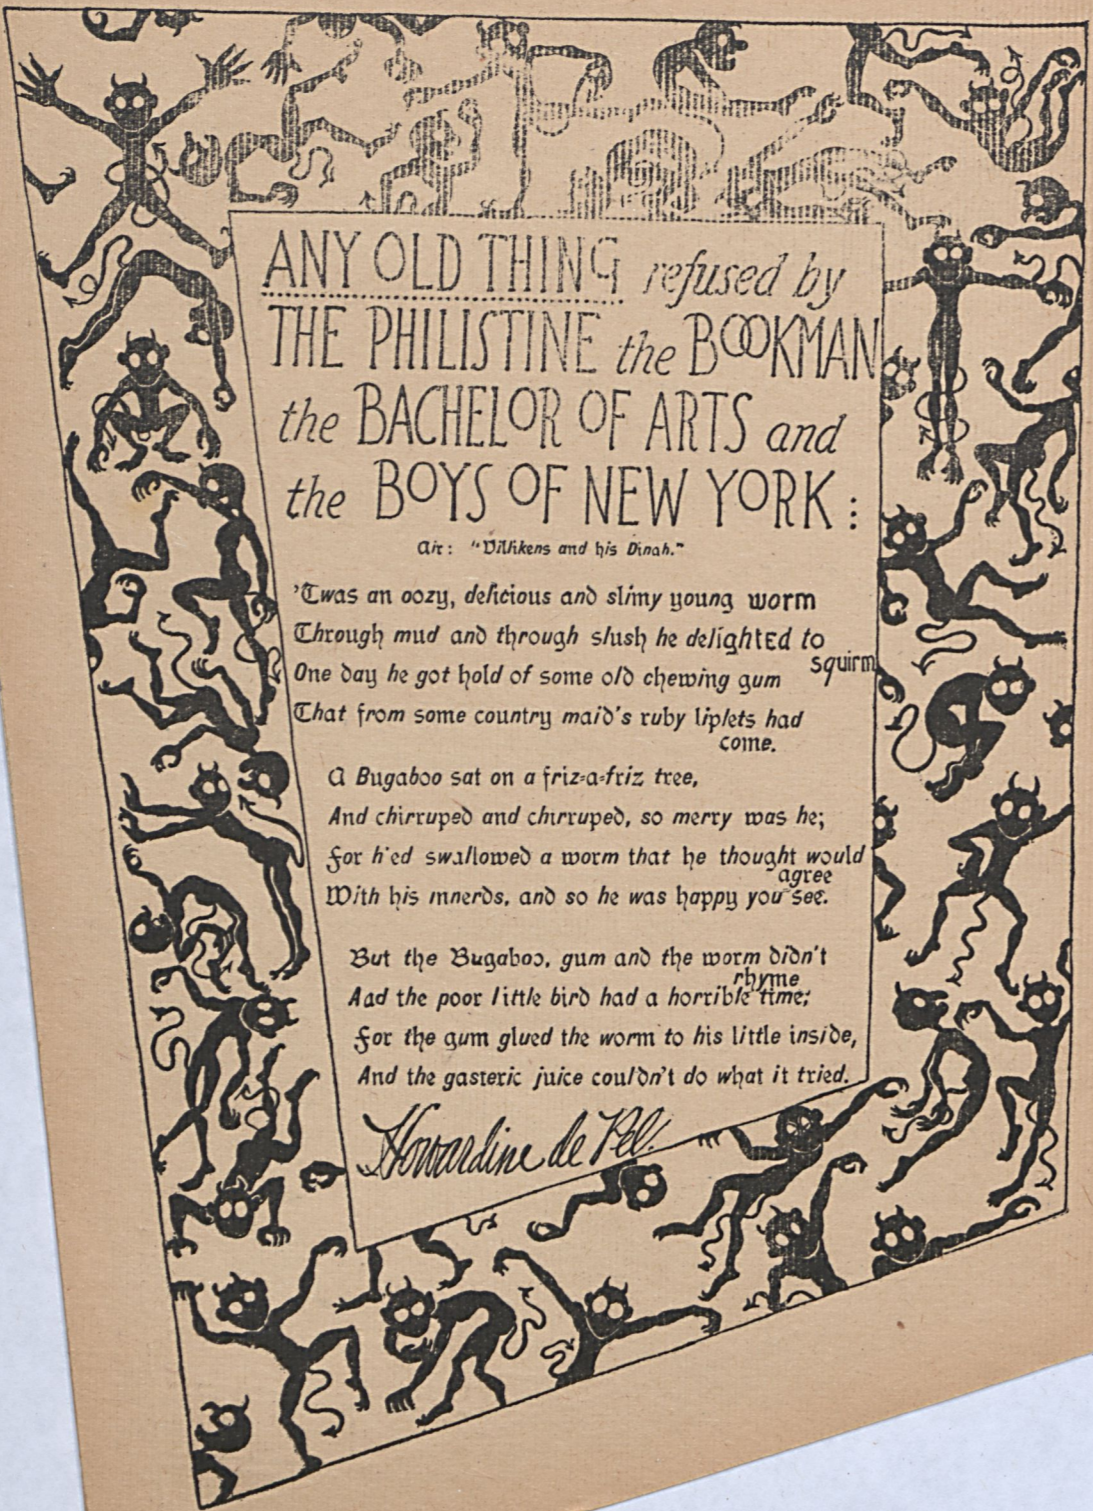 ANY OLD THING refused by
THE PHILISTINE the BOOKMAN
the BACHELOR OF ARTS and
the BOYS OF NEW YORK:
Air: "Villikens and his Dinah."
'Twas an oozy, delicious and slimy young worm
Through mud and through slush he delighted to
squirm
One day he got hold of some old chewing gum
That from some country maid's ruby liplets had
come.
A Bugaboo sat on a friz-a-friz tree,
And chirruped and chirruped, so merry was he;
For h'ed swallowed a worm that he thought would
agree
With his innerds, and so he was happy you see.
But the Bugaboo, gum and the worm didn't
rhyme
Aad the poor little bird had a horrible time;
For the gum glued the worm to his little inside,
And the gasteric juice couldn't do what it tried.
Howardine de Pel.